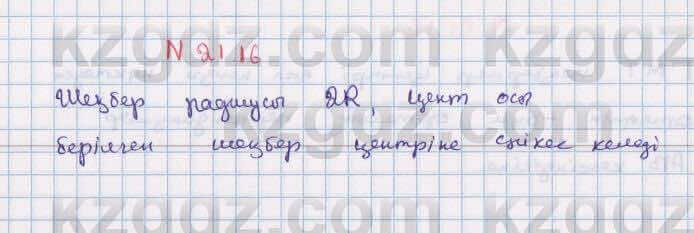 N 21.16
Шеңбер радиусы 2R, цент осы
берілген шеңбер центріне сәйкес келеді
kzgdz.com kzgdz
kzgdz.com kzgdz
kzgdz.com kzgdz